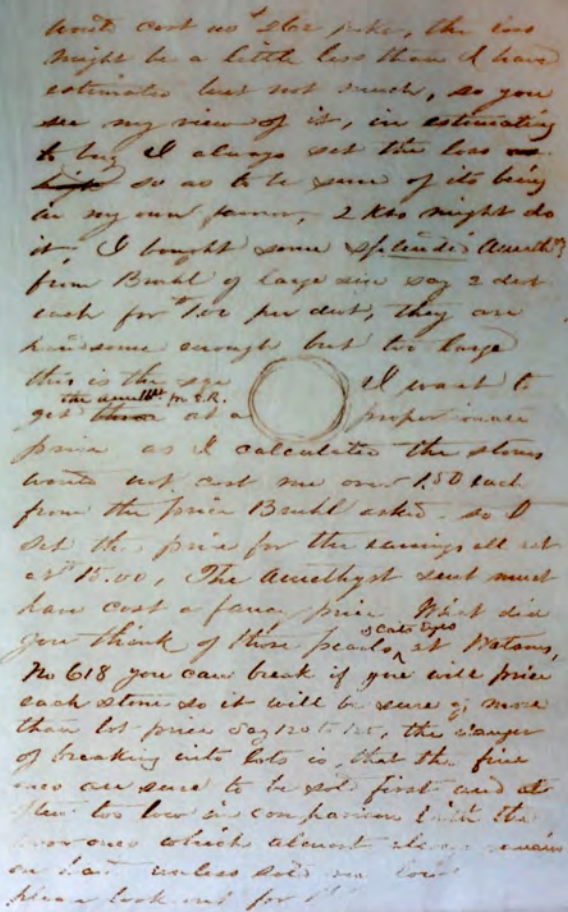 would cost no
might be a little less than I have
estimated but not much, so you
see my view of it, in estimating
to buy I always set the loss
high so as to be sure of its being
in my own favor, 2 Kts might do
it, I bought some splendid Ameth
from Bruhl of large size say 2 dwt
each for per dwt, they are
handsome enough but too large
this is the size I want to
the ameth for E.R.
get these at a proportionate
price as I calculated the stones
would not cost me over 1.50 each
from the price Bruhl asked so I
set the price for the earrings all set
at 15.00, The Amethyst sent must
have cost a fancy price What did
& Cats Eyes
you think of those pearls at Watsons,
No 618 you can break if you will price
each stone so it will be sure of more
than lot price say 120 to the danger
of breaking into lots is, that the fine
ones are sure to be sold first and at
too low in comparison with the
poor ones which almost always remain
on hand unless sold
please look out for